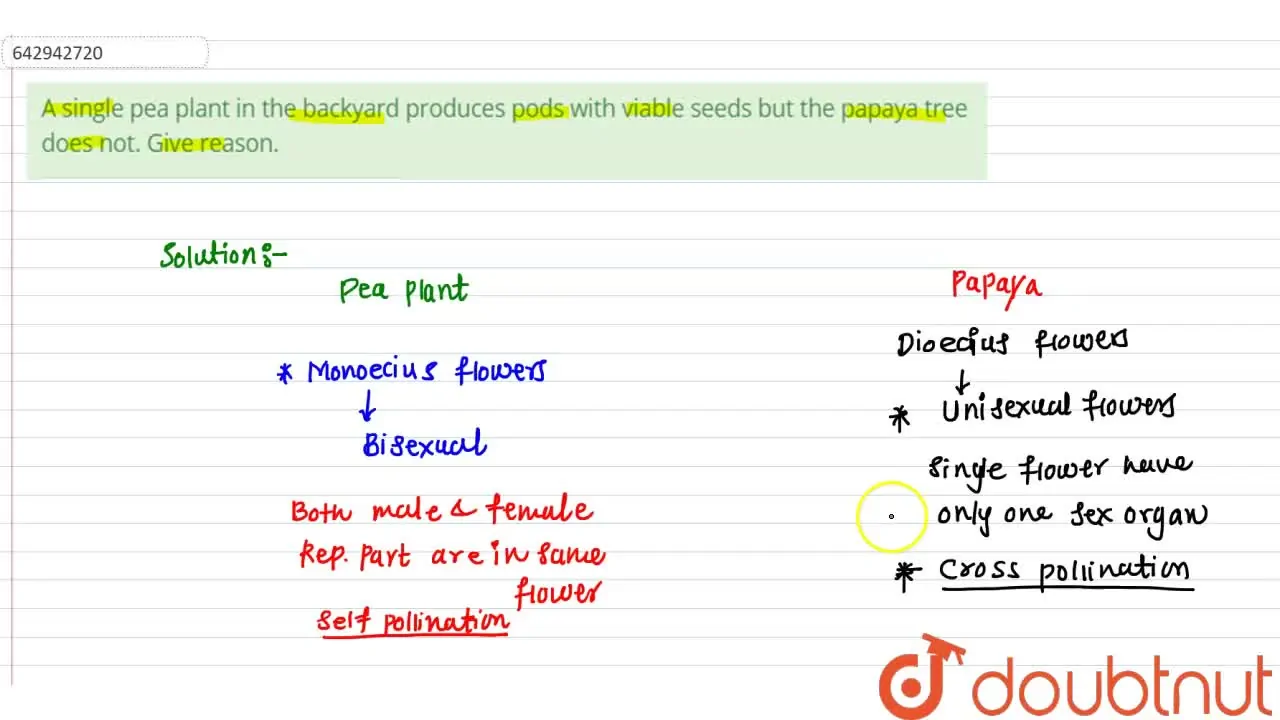 642942720
A single pea plant in the backyard produces pods with viable seeds but the papaya tree
does not. Give reason.
Solution:-
Pea plant
* Monoecius flowers
↓
Bisexual
Both male & female
Rep. part are in same
flower
Self pollination
Papaya
Dioecius flowers
↓
* Unisexual flowers
Single flower have
only one sex organ
* Cross pollination
doubtnut